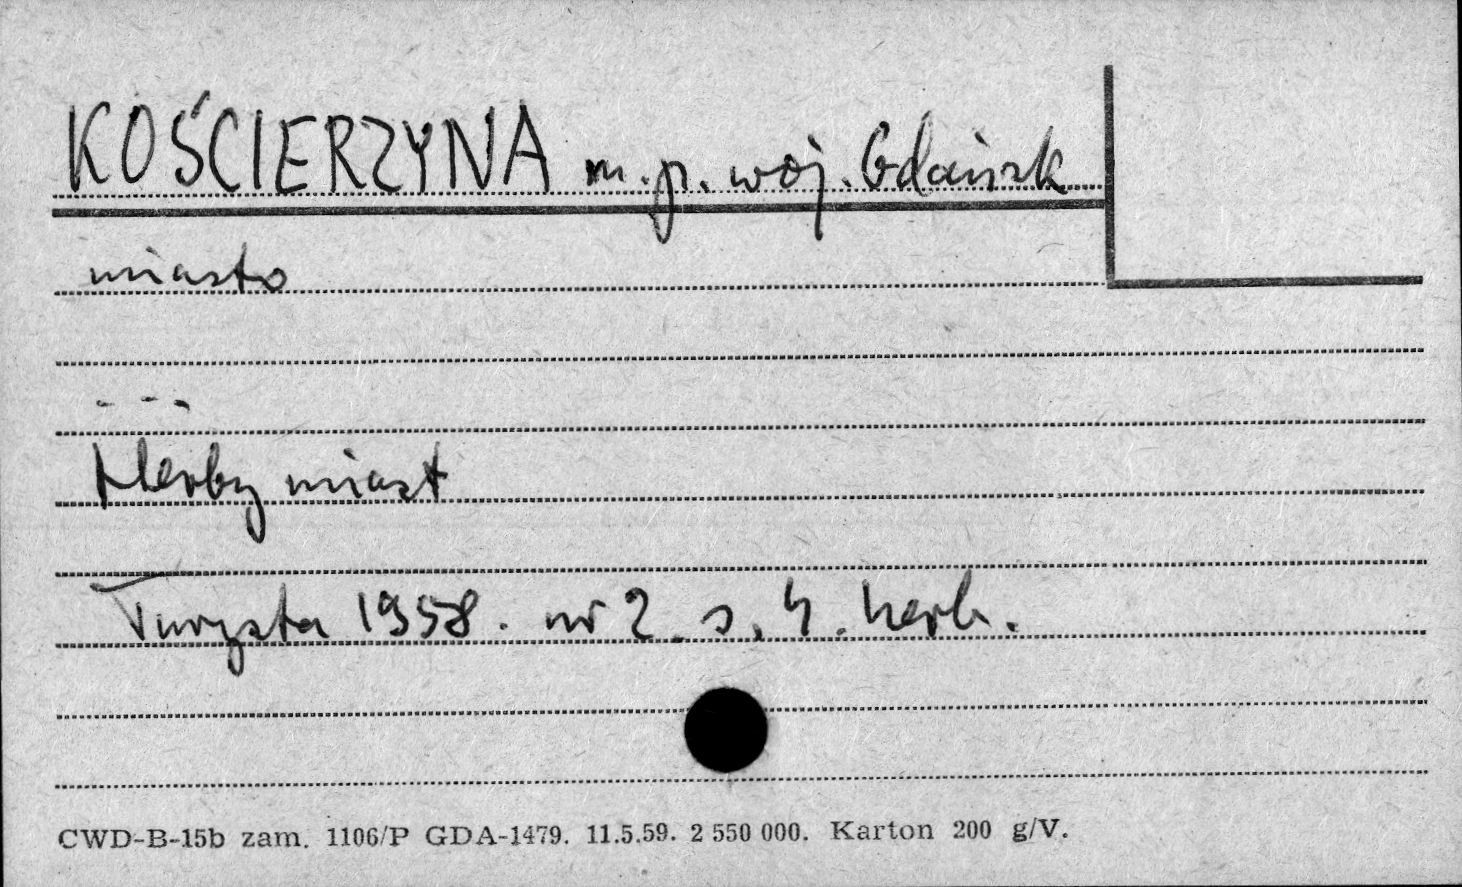 KOŚCIERZYNA m. p. woj. Gdańsk
miasto
- - -
Herby miast
Turysta 1958. nr 2. s. 4. herb.
CWD-B-15b zam. 1106/P GDA-1479. 11.5.59. 2 550 000. Karton 200 g/V.